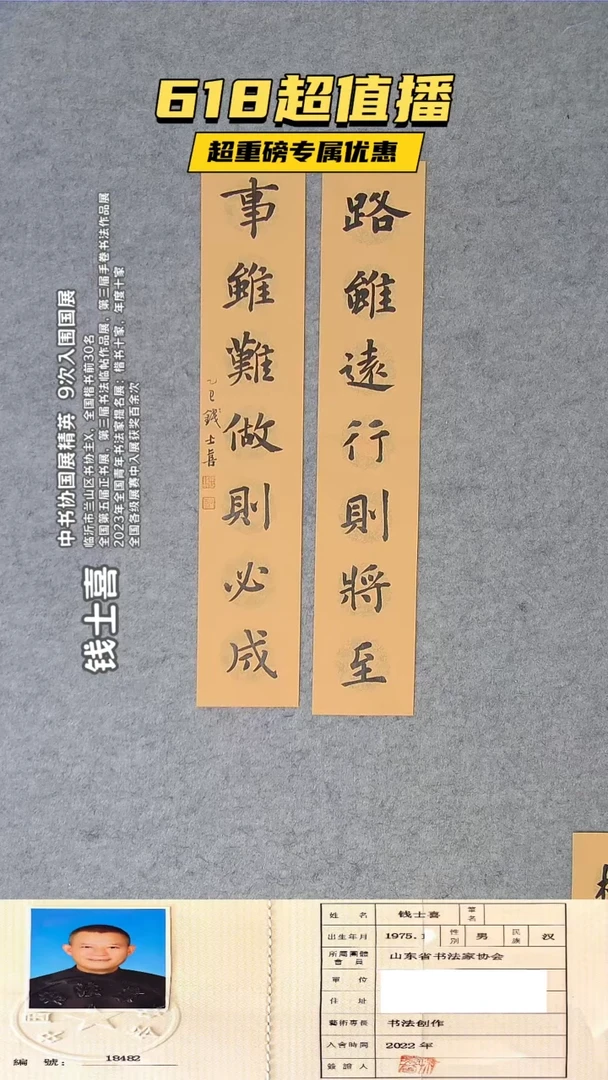 618超值播
超重磅专属优惠
路雖遠行則將至
事雖難做則必成
乙巳錢士喜
钱士喜
中书协国展精英 9次入围国展
临沂市兰山区书协主X、全国楷书前30名
全国第五届正书展，第三届书法临帖作品展，第三届手卷书法作品展
2023年全国青年书法家提名展：楷书十家，年度十家
全国各级展赛中入展获奖百余次
編 號： 18482
姓 名 钱士喜 筆名
出生年月 1975.1 性别 男 民族 汉
所屬團體會員 山东省书法家协会
單 位
住 址
藝術專長 书法创作
入會時間 2022 年
簽證人